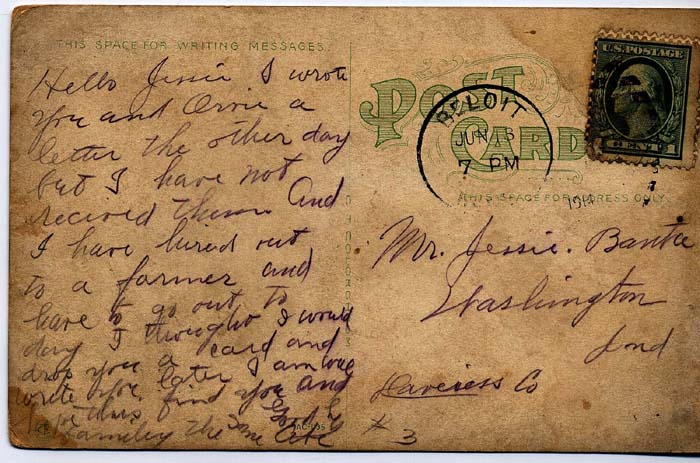 THIS SPACE FOR WRITING MESSAGES.
Hello Jessie I wrote
you and Orvie a
letter the other day
but I have not
recived them and
I have hired out
to a farmer and
have to go out to
day I thought I would
drop you a card and
write you later I am well
hope this find you and
familey the same
POST CARD
THIS SPACE FOR ADDRESS ONLY.
BELOIT
JUN 16
7 PM
U.S. POSTAGE
CENT 1
Mr. Jessie. Banta
Washington
Ind
Daviess Co
# 3